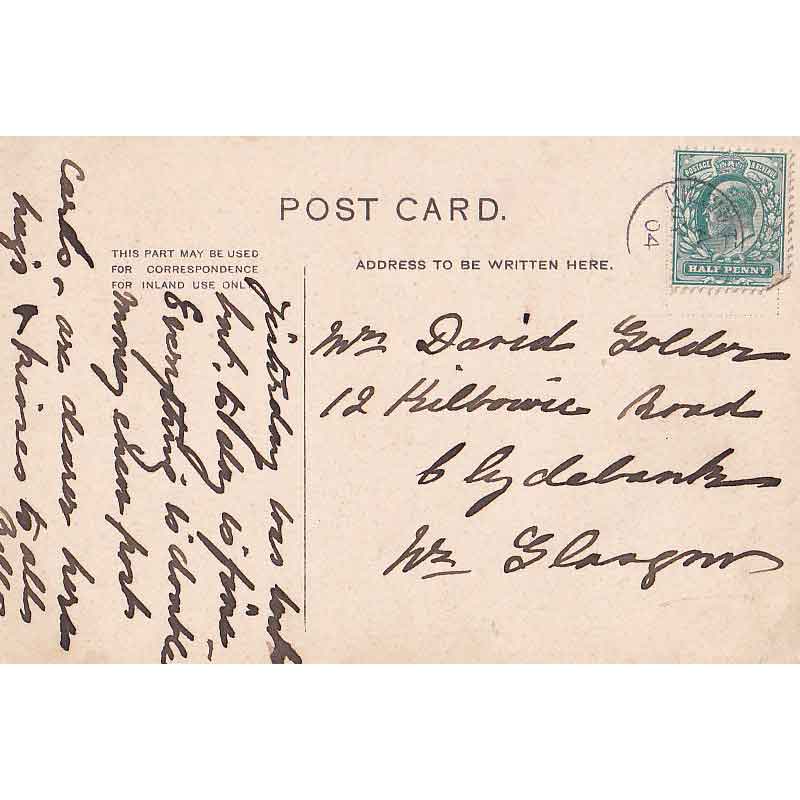 POST CARD.
THIS PART MAY BE USED
FOR CORRESPONDENCE
FOR INLAND USE ONLY
ADDRESS TO BE WRITTEN HERE.
POSTAGE REVENUE
HALF PENNY
04
Mrs David Golder
12 Kilbowie Road
Clydebank
Nr Glasgow
Yesterday was wet
but today is fine
Everything is double
Money even post
Cards are dearer here
hugs & kisses to all